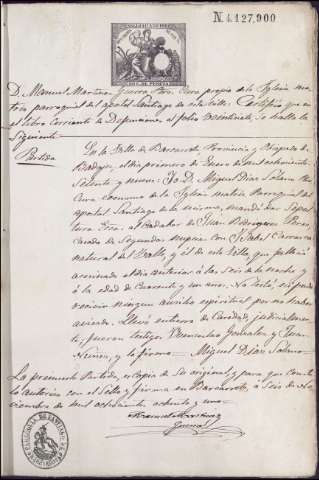 N. 4.127,900
D. Manuel Martinez Guerra Pbro. Cura propio de la Iglesia ma-
triz parroquial del apostol Santiago de esta villa. Certifico que en
el libro corriente de Defunciones al folio se halla la
Siguiente
Partida
En la Villa de Barcarrota Provincia y Obispado de
Badajoz, el dia primero de Enero de mil ochocientos
setenta y nueve: Yo D. Miguel Diaz Solano
Cura economo de la Iglesia matriz Parroquial del
apostol Santiago de la misma, mandé dar Sepul-
tura Ecca. al cadaver de Juan Rodriguez
Casado de Segundas nupcias con Isabel
natural del Valle, y él de esta Villa, que falleció
el dia anterior á las seis de la noche y
á la edad de cuarenta y un anos. No testó, ni pudo
recibir ningun auxilio espiritual por no haber
avisado. Llevó entierro de Caridad,
te, fueron testigos Wenceslao Gonzalez y Juan
Nunez, y lo firmo = Miguel Diaz Solano
La preinserta Partida, es copia de su original, y para que conste
la autorizo con el Sello y firma en Barcarrota á seis de
ciembre de mil ochocientos ochenta y uno =
Manuel Martinez
Guerra